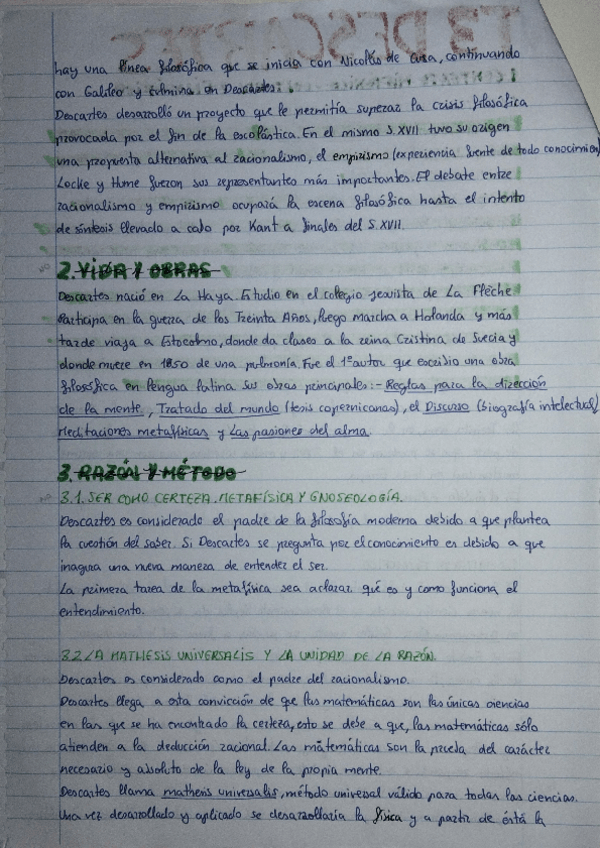 hay una línea filosófica que se inicia con Nicolás de Cusa, continuando
con Galileo y culmina en Descartes.
Descartes desarolló un proyecto que le permitía superar la crisis filosófica
provocada por el fin de la escolástica. En el mismo S.XVII tuvo su origen
una propuesta alternativa al racionalismo, el empirismo (experiencia fuente de todo conocimien
Locke y Hume fueron sus representantes más importantes. El debate entre
racionalismo y empirismo ocupará la escena filosófica hasta el intento
de síntesis llevado a cabo por Kant a finales del S.XVII.
2. VIDA Y OBRAS
Descartes nació en La Haya. Estudio en el colegio jesuista de La Flèche.
Participa en la guerra de los Treinta Años, luego marcha a Holanda y más
tarde viaja a Estocolmo, donde da clases a la reina Cristina de Suecia y
donde muere en 1850 de una pulmonía. Fue el 1º autor que escribio una obra
filosófica en lengua latina. Sus obras principales:- Reglas para la dirección
de la mente, Tratado del mundo (tesis copernicanas), el Discurso (biografía intelectual)
Meditaciones metafísicas y Las pasiones del alma.
3. RAZÓN Y MÉTODO
3.1. SER COMO CERTEZA. METAFÍSICA Y GNOSEOLOGÍA.
Descartes es considerado el padre de la filosofía moderna debido a que plantea
la cuestión del saber. Si Descartes se pregunta por el conocimiento es debido a que
inagura una nueva manera de entender el ser.
La primera tarea de la metafísica sea aclarar qué es y como funciona el
entendimiento.
3.2 LA MATHESIS UNIVERSALIS Y LA UNIDAD DE LA RAZÓN.
Descartes es considerado como el padre del racionalismo.
Descartes llega a esta convicción de que las matemáticas son las únicas ciencias
en las que se ha encontrado la certeza, esto se debe a que, las matemáticas sólo
atienden a la deducción racional. Las matemáticas son la prueba del carácter
necesario y absoluto de la ley de la propia mente.
Descartes llama mathesis universalis, método universal válido para todas las ciencias.
Una vez desarrollado y aplicado se desarrollaría la física y a partir de ésta la